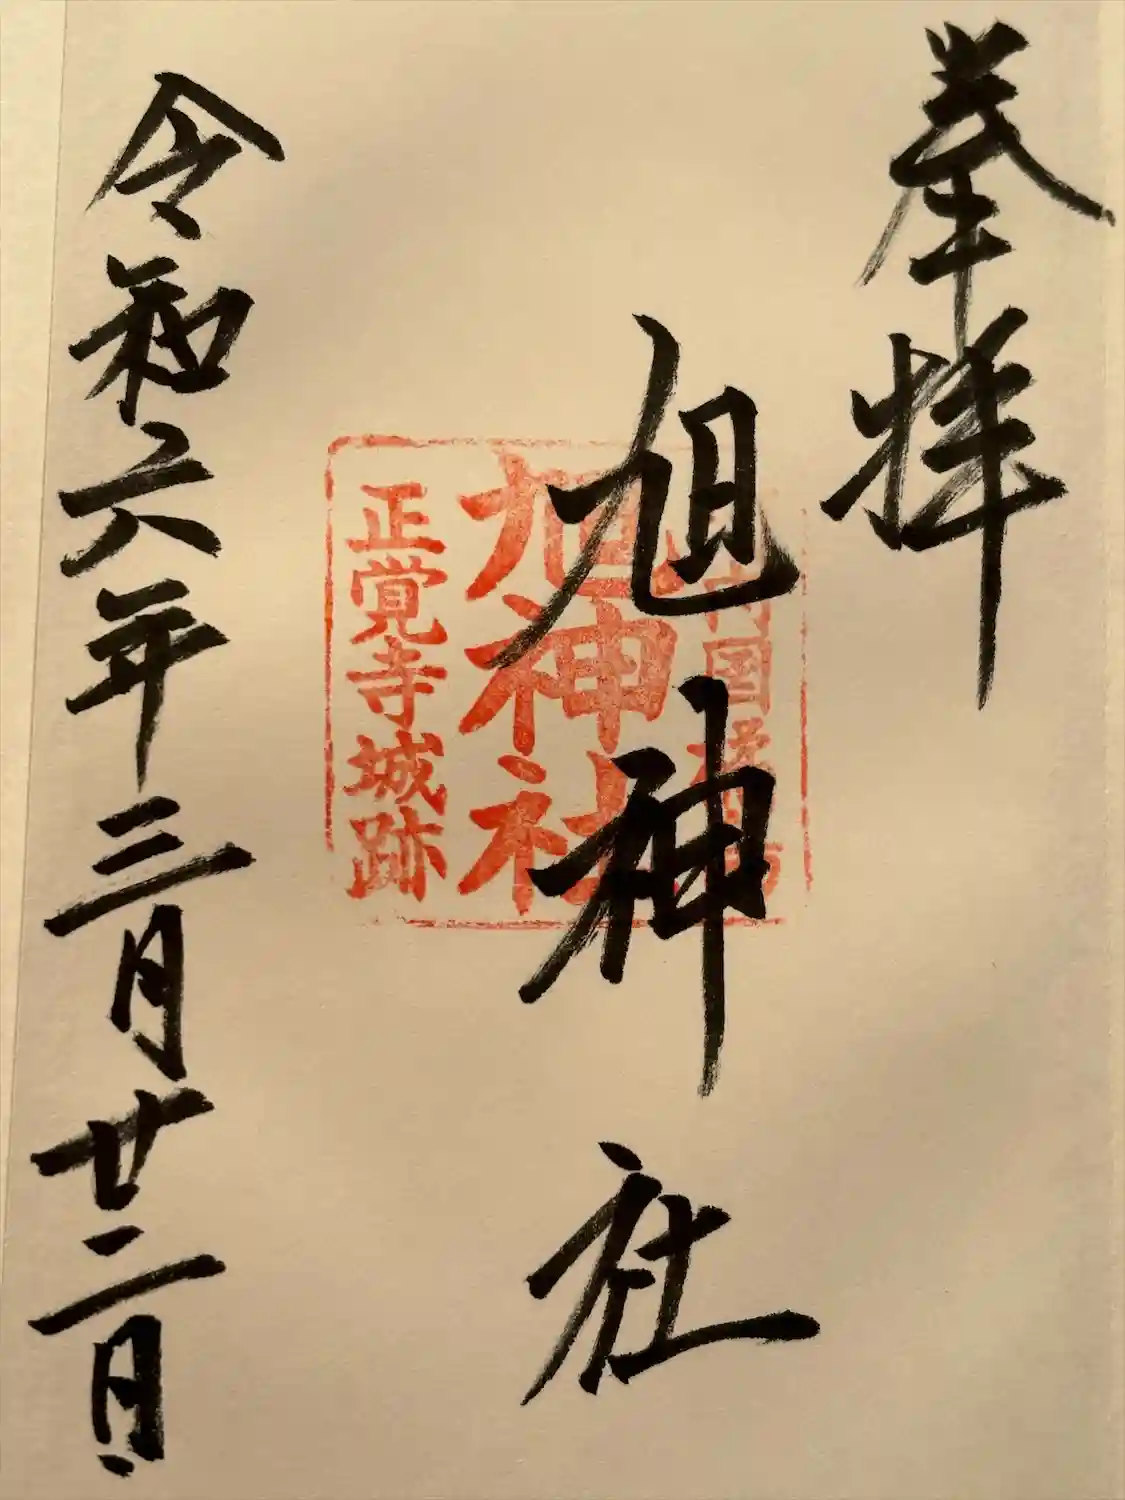 奉拝
旭神社
令和六年三月廿二日
旭神社
正覚寺城跡